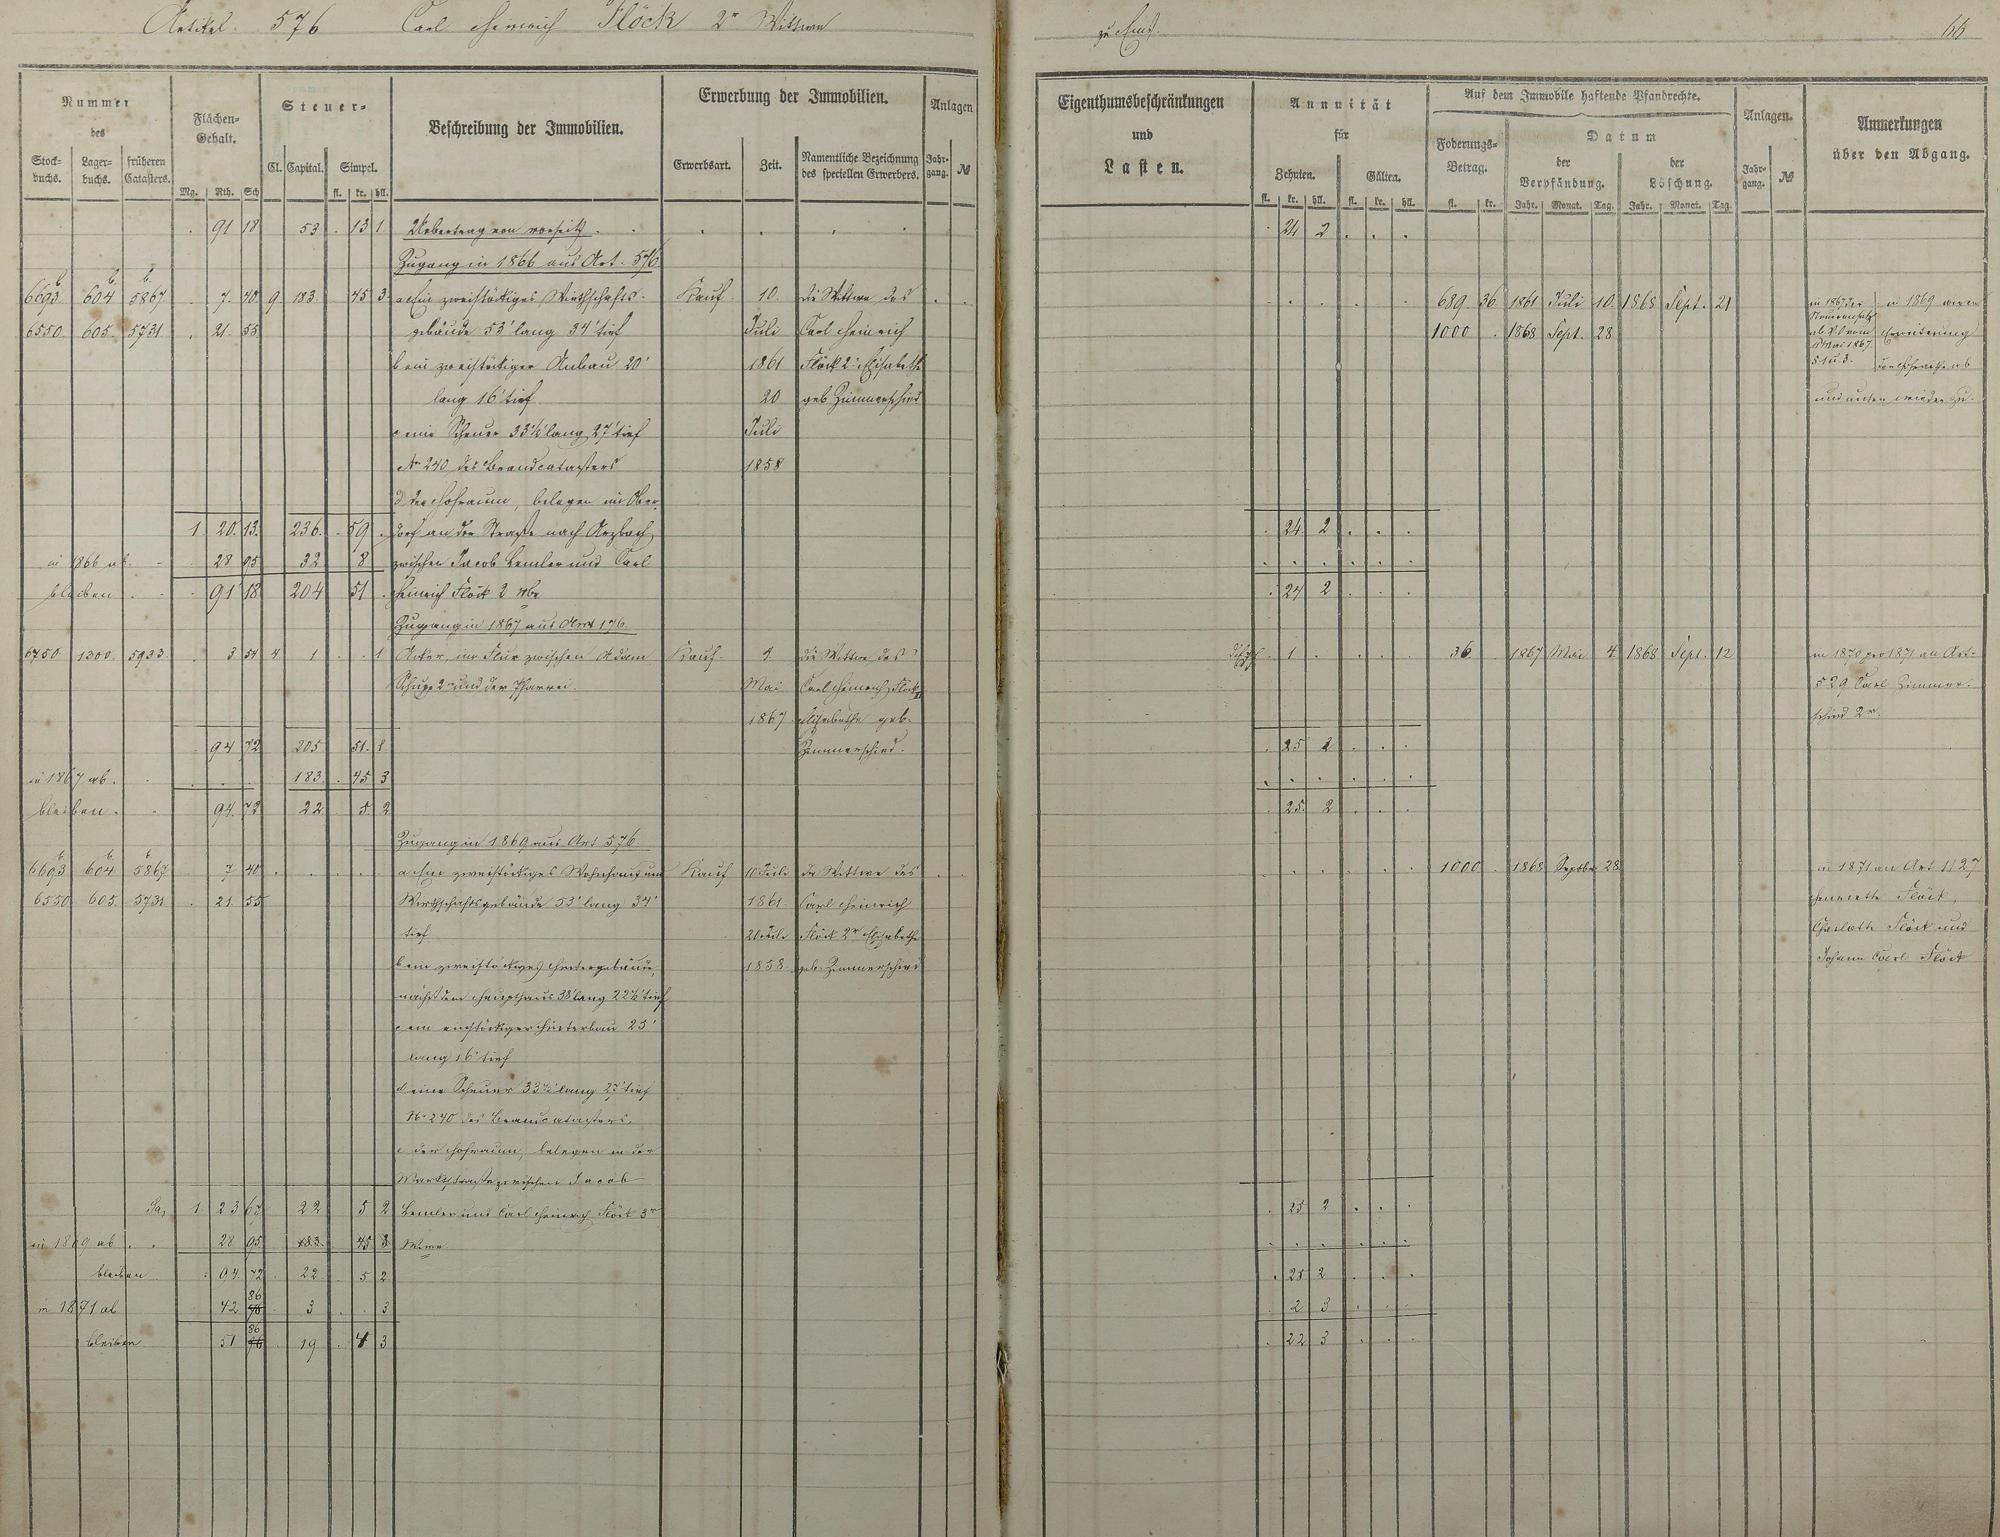 Artikel 576 Carl Heinrich Flöck 2r Wittwe
zu Ems. 66
Nummer des
Stockbuchs. Lagerbuchs. früheren Catasters.
Flächen-Gehalt.
Mg. Rth. Sch
Steuer-
Cl. Capital. Simpel.
fl. kr. hll.
Beschreibung der Immobilien.
Erwerbung der Immobilien.
Erwerbsart. Zeit. Namentliche Bezeichnung des speciellen Erwerbers.
Anlagen
Jahrgang. №
Eigenthumsbeschränkungen
und
Lasten.
Annuität
für
Zehnten. Gülten.
fl. kr. hll. fl. kr. hll.
Auf dem Immobile haftende Pfandrechte.
Foderungs-Betrag.
fl. kr.
Datum
der Verpfändung. der Löschung.
Jahr. Monat. Tag. Jahr. Monat. Tag.
Anlagen.
Jahrgang. №
Anmerkungen
über den Abgang.
. 91 18 53 . 13 1 Uebertrag von vorseits . . 24 2
Zugang in 1866 aus Art. 576
6693 b 604 b 5867 b . 7. 40 9 183. 45 3 a Ein zweistöckiges Wirthschafts- Kauf 10. die Wittwe des 689 36 1861 Juli 10 1868 Sept. 21
6550. 605. 5731 . 21. 55 gebäude 53' lang 34' tief Juli Carl Heinrich 1000 . 1868 Sept. 28
b ein zweistöckiger Anbau 20' 1861 Flöck 2r Elisabethe
lang 16' tief 20 geb Zimmerschied
c eine Scheuer 33½' lang 27' tief Juli
No 240 des Brandcatasters 1858
d der Hofraum, belegen im Ober-
1 20. 13. 236. 59 . dorf an der Straße nach Arzbach . 24. 2
in 1866 ab. 28 95 32 8 zwischen Jacob Lemler und Carl
bleiben . 91 18 204 51 . Heinrich Flöck 2 Wwe . 24 2
in 1867 der
ab V.O vom
Mai 1867.
in 1869 wegen
Erweiterung
und unten wieder zu.
Zugang in 1867 aus Art 176
6750 1300. 5933 . 3 54 4 1 . . 1 Acker, im Flur zwischen Adam Kauf. 9 die Wittwe des 1 36 1867 Mai 4. 1868 Sept. 12 in 1870 pro 1871 an Art.
2r und der Pfarrei. Mai Carl Heinrich Flöck 529 Carl Zimmer-
1867 Elisabethe geb. schied 2r.
94 72 205 51. 1 Zimmerschied. . 25 2
in 1867 ab. 183. 45 3
bleiben. 94. 72 22 5 2 . 25. 2
Zugang in 1869 aus Art 576
6693 b 604 b 5867 b 7 40 a Ein zweistöckiges Wohnhaus und Kauf 10 Juli die Wittwe des 1000 . 1868 Septbr 28 in 1871 an Art 1127
6550. 605. 5731 . 21 55 Wirthschaftsgebäude 53' lang 34' 1861. Carl Heinrich Henriette Flöck,
tief 20 Juli Flöck 2r Elisabethe Charlotte Flöck und
b ein zweistöckiges Hintergebäude, 1858 geb. Zimmerschied Johann Carl Flöck
nächst dem Haupthaus 38' lang 22½' tief
c ein einstöckiger Hinterbau 25'
lang 16' tief
d eine Scheuer 33½' lang 27' tief
No 240 des Brandcatasters,
e der Hofraum, belegen in der
Marktstraße zwischen Jacob
Sa, 1 23 67 22 5 2 Lemler und Carl Heinrich Flöck 3r . 25 2
in 1869 ab . . 28 95 183. 45 3 Wwe.
bleiben . 94 72 22 5 2 . 25 2
in 1871 ab 42 86 3 . . 3 . 2 3
bleiben 51 86 19 . 4 3 . 22 3